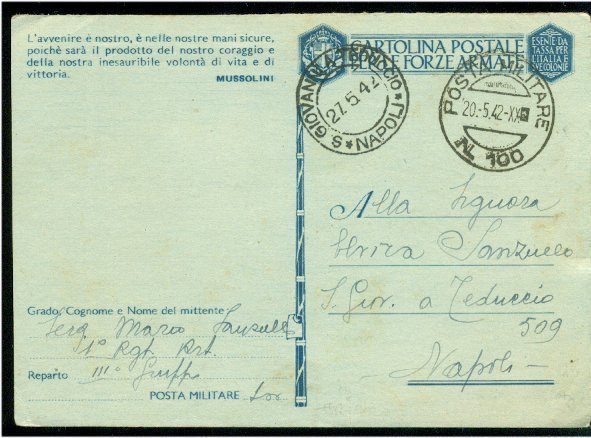 L'avvenire è nostro, è nelle nostre mani sicure,
poichè sarà il prodotto del nostro coraggio e
della nostra inesauribile volontà di vita e di
vittoria.
MUSSOLINI
CARTOLINA POSTALE
PER LE FORZE ARMATE
ESENTE DA
TASSA PER
L'ITALIA E
SUE COLONIE
S. GIOVANNI A TEDUCCIO
27.5.42
NAPOLI
POSTA MILITARE
20.-5.42-XX
N. 100
Alla Signora
Elvira
S. Giov. a Teduccio
509
Napoli
Grado, Cognome e Nome del mittente
Mario
1° Rgt. Art.
Reparto III°
POSTA MILITARE 100